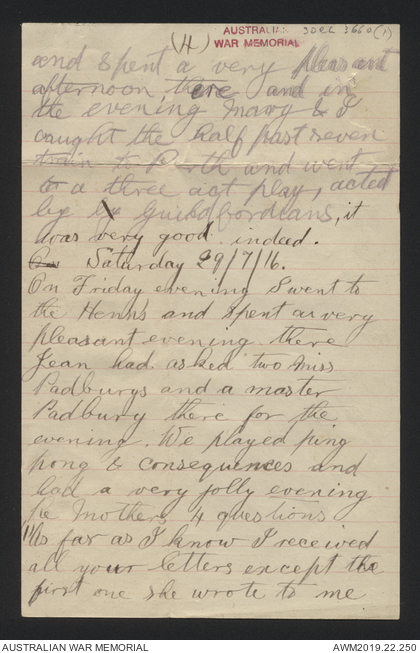 (4)
AUSTRALIAN
WAR MEMORIAL
3DRL 3660(1)
and spent a very pleasant
afternoon there and in
the evening Mary & I
caught the half past seven
train to Perth and went
to a three act play, acted
by by Guildfordians, it
was very good indeed.
On Saturday 29/7/16.
On Friday evening I went to
the Henns and spent a very
pleasant evening there
Jean had asked two Miss
Padburys and a master
Padbury there for the
evening. We played ping
pong & consequences and
had a very jolly evening
re Mothers 4 questions
"As far as I know I received
all your letters except the
first one she wrote to me
AUSTRALIAN WAR MEMORIAL
AWM2019.22.250